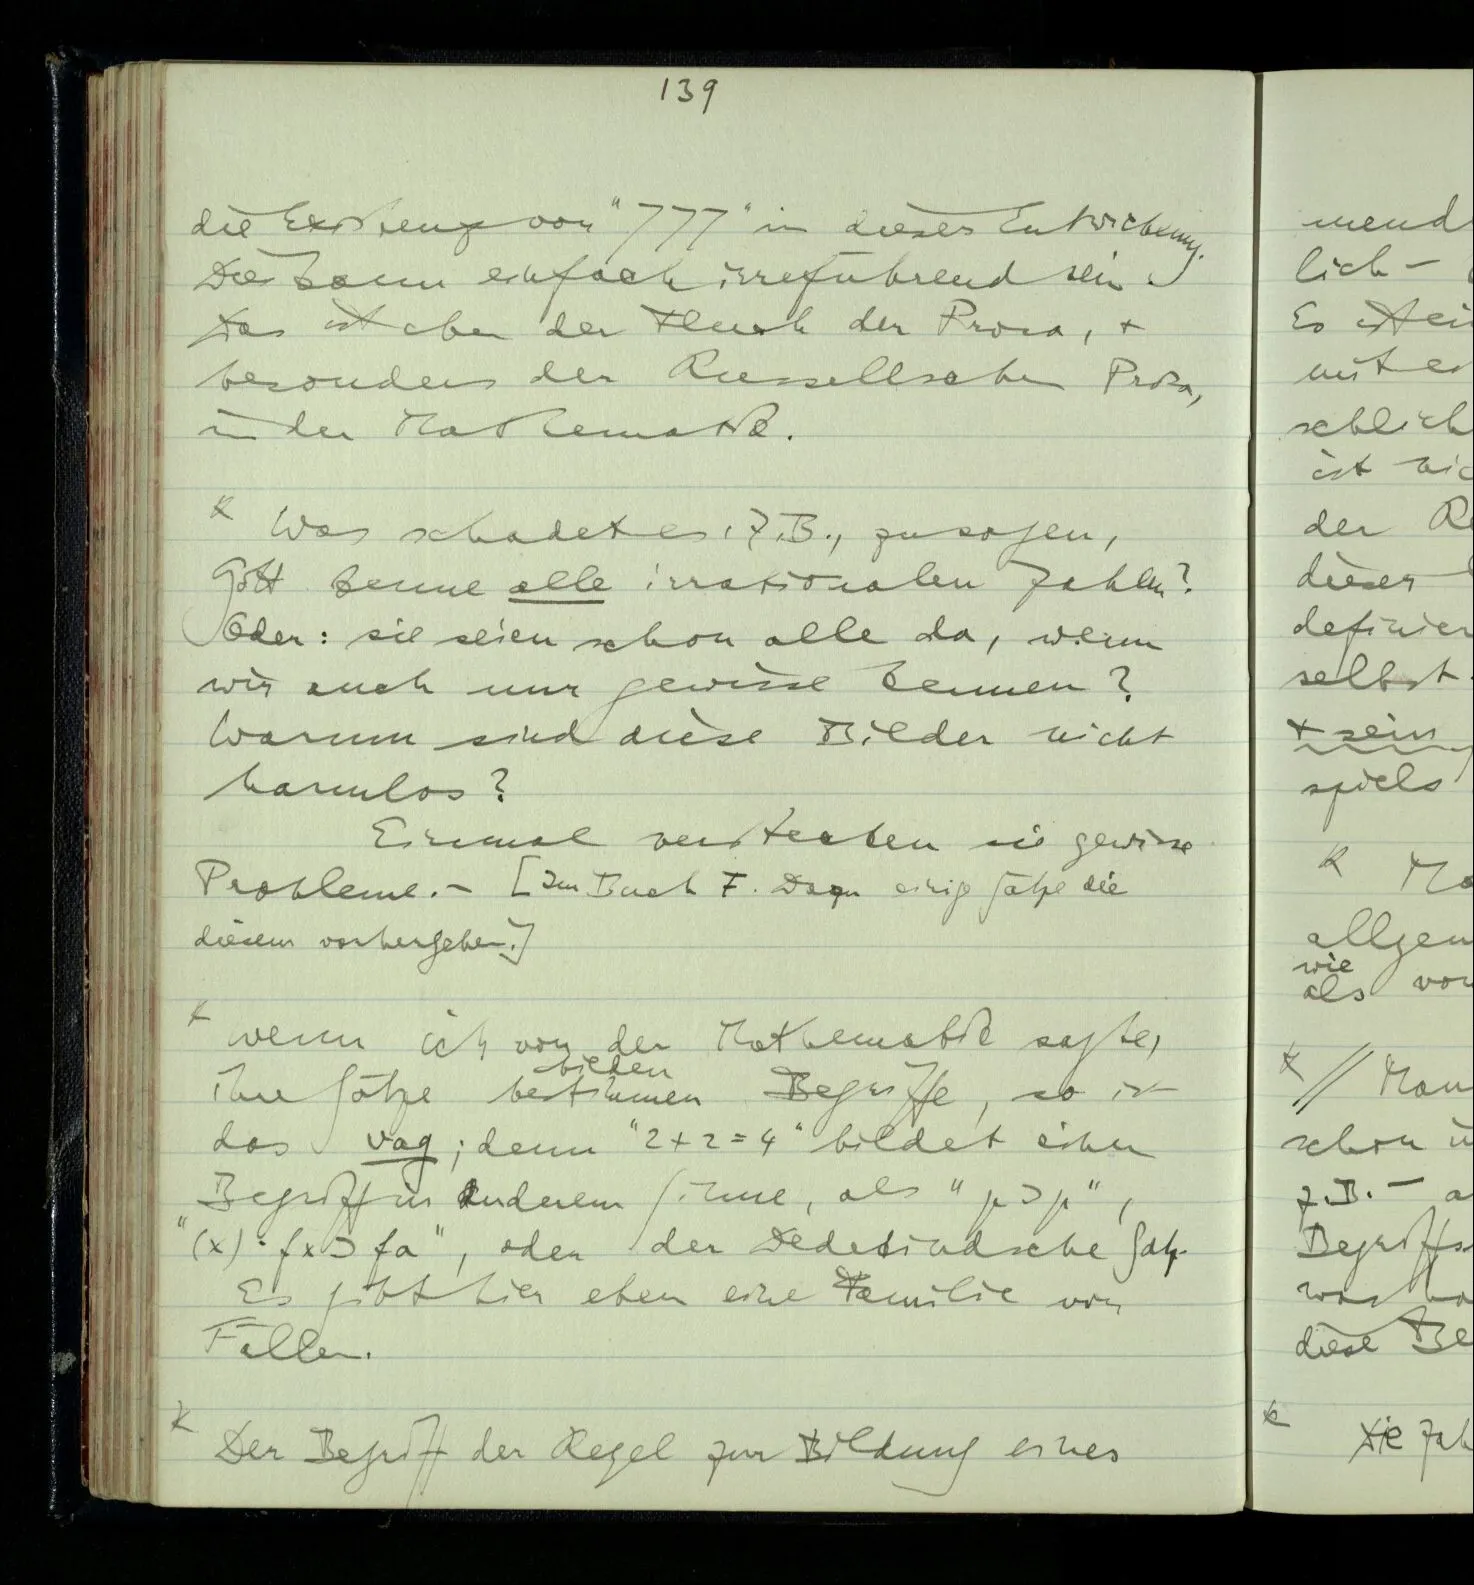 139
die Existenz von "777" in dieser Entwicklung.
Dies kann einfach irreführend sein.
Das ist aber der Fluch der Prosa, +
besonders der Russellschen Prosa,
in der Mathematik.
Was schadet es, z.B., zu sagen,
Gott kenne alle irrationalen Zahlen?
Oder: sie seien schon alle da, wenn
wir auch nur gewisse kennen?
Warum sind diese Bilder nicht
harmlos?
Einmal verstecken sie gewisse
Probleme. – [Im Buch F. Dazu einige Sätze die
diesem vorhergehen.]
Wenn ich von der Mathematik sagte,
bilden
ihre Sätze bestimmen Begriffe, so ist
das vag; denn "2+2=4" bildet einen
Begriff in anderem Sinne, als "p⊃p",
"(x)·fx⊃fa", oder der Dedekindsche Satz.
Es gibt hier eben eine Familie von
Fällen.
Der Begriff der Regel zur Bildung eines
mend
lich –
Es ist ein
mit
schlich
ist nic
der Re
dieser
definier
selbst
+ sein
spiels
Ma
allgem
wie
als von
// Man
schon
z.B. – a
Begriffs
was
diese Be
Die Zah